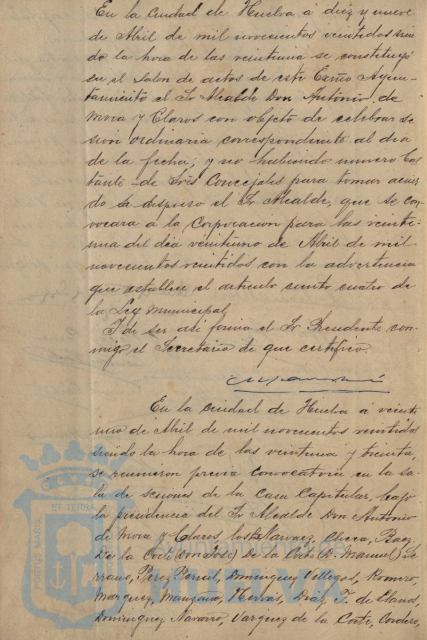 En la ciudad de Huelva á diez y nueve
de Abril de mil novecientos veintidos sien
do la hora de las veintiuna se constituyó
en el Salon de actos de este Excmo Ayun
tamiento el Sr Alcalde Don Antonio de
Mora y Claros con objeto de celebrar se
sion ordinaria correspondiente al dia
de la fecha; y no habiendo numero bas
tante de Sres Concejales para tomar acuer
do se dispuso el Sr Alcalde, que se con
vocara á la Corporacion para las veinti
una del dia veintiuno de Abril de mil
novecientos veintidos con la advertencia
que establece el articulo ciento cuatro de
la Ley Municipal,
I de ser asi firma el Sr Presidente con
migo el Secretario de que certifico.
En la ciudad de Huelva á veinti
uno de Abril de mil novecientos veintidos
siendo la hora de las veintiuna y treinta,
se reunieron previa convocatoria en la sa
la de sesiones de la Casa Capitular, bajo
la presidencia del Sr Alcalde Don Antonio
de Mora y Claros, los Narvaez, Checa,
De la Corte (Don José) De la Corte (D. Manuel) Se
rrano, Perez Domínguez Vallezos, Romero,
Marquez, Manzano, Hervás, Diaz, F. de Eland,
Dominguez Navarro, Vazquez de la Corte, Cordero,
PORTUS MARIS ET TERRAE
HUELVA